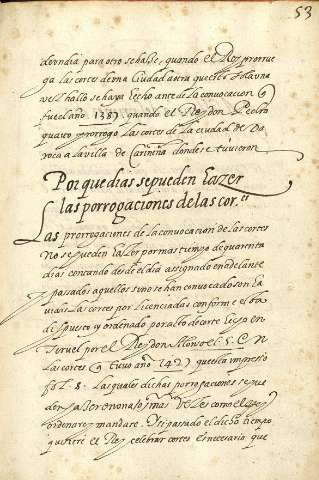 53
de un dia para otro se hasse, quando el Rey prorrue
ga las cortes de una Ciudad a otra que esto solauna
vez hallo se haya hecho ante de la convocacion q
fue el año 1387 quando el Rey don Pedro
quarto prorrogo las cortes de la ciudad de Da
roca a la villa de Cariñena donde se tuvieron
Por que dias se pueden hazer
las porrogaciones de las cor.es
Las prorrogaciones de la convocacion de las cortes
no se pueden hazer por mas tiempo de quarenta
dias contando desde el dia assignado en adelante
y passados aquellos sino se han convocado son ha
vidas las cortes por licenciadas conforme esta
dispuesto y ordenado por alto de corte hecho en
teruel por el Rey don Alonso el 5. en
las cortes q tuvo año 1427 questa impresso
fol. 8. Las quales dichas porrogaciones se pue
den hazer en una o mas vezes como el Rey
ordenare y mandare. Mas passado el dicho tiempo
quisiere el Rey celebrar cortes es necesario que